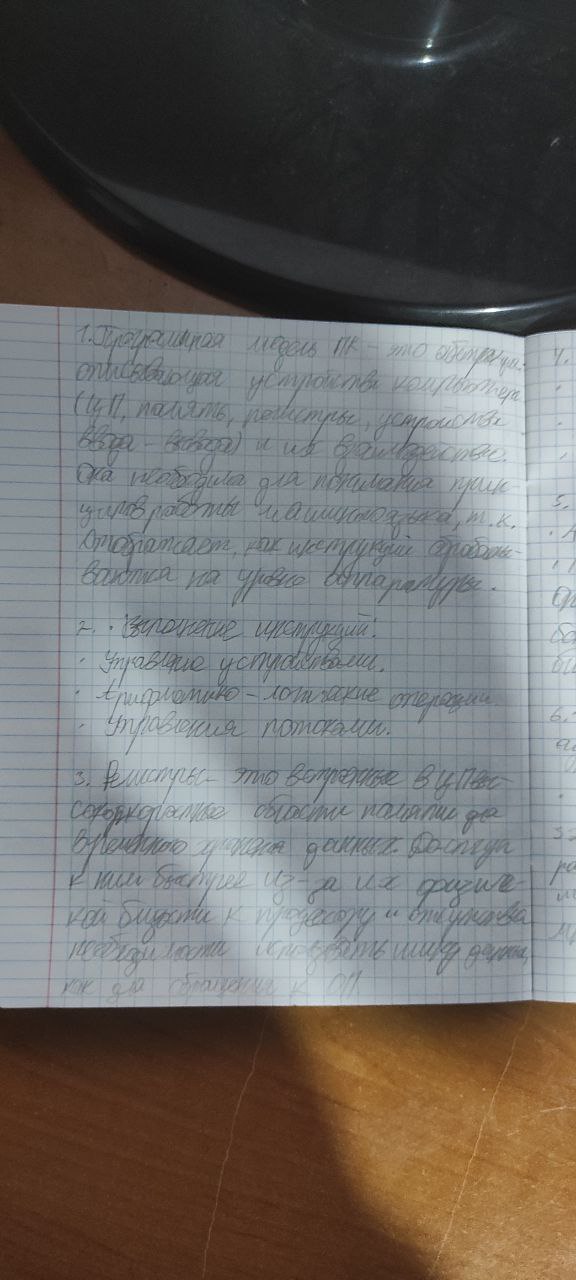 1. Программная модель ПК - это абстракция,
описывающая устройства компьютера
(ЦП, память, регистры, устройства
ввода - вывода) и их взаимодействие.
Она необходима для понимания прин-
ципов работы машинного языка, т. к.
отображает, как инструкции обрабаты-
ваются на уровне аппаратуры.
2. · Выполнение инструкций.
· Управление устройствами.
· Арифметико - логические операции.
· Управления потоками.
3. Регистры - это встроенные в ЦП вы-
сокоскоростные области памяти для
временного хранения данных. Доступ
к ним быстрее из-за их физичес-
кой близости к процессору и отсутствия
необходимости использовать шину данных,
как для обращения к ОП
5.
6.